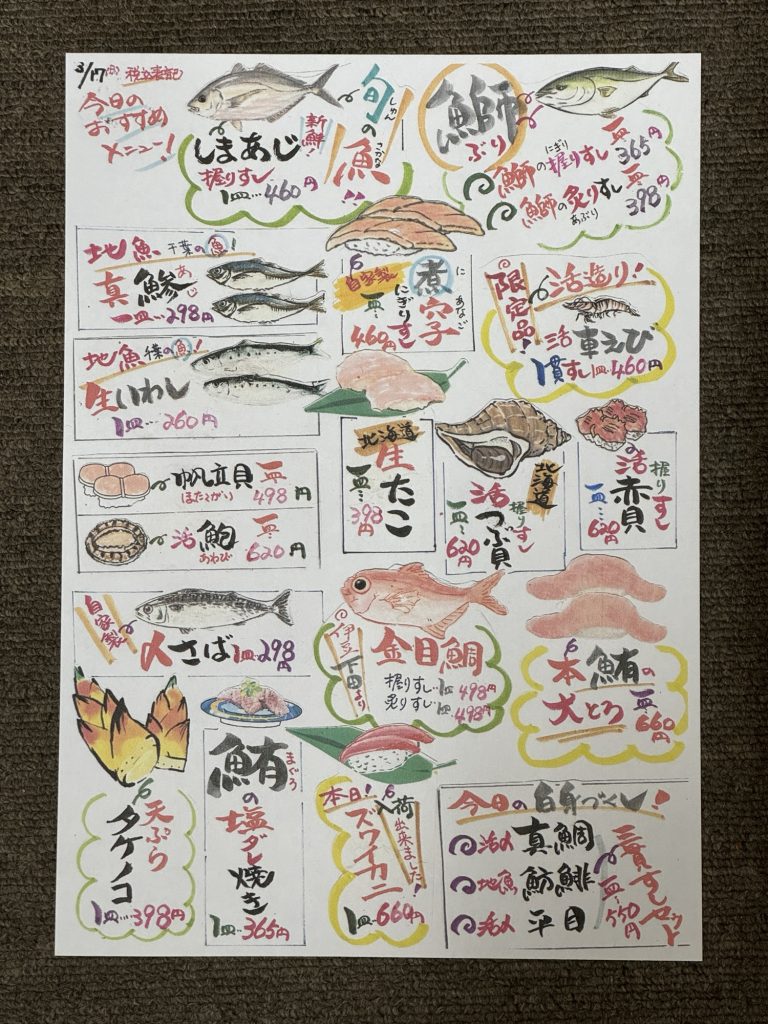 3/17
税込表記
今日の
おすすめ
メニュー!
旬の魚!!
しゅん
さかな
新鮮!
しまあじ
握りすし
1皿…460円
鰤
ぶり
鰤の握りすし 一皿 365円
にぎり
鰤の炙りすし 一皿 398円
あぶり
地魚 千葉の魚!
真鯵
あじ
一皿…298円
自家製
煮穴子
にあなご
にぎりすし
一皿…460円
限定品!
活造り!
活車えび
1貫すし1皿…460円
地魚 千葉の魚!
生いわし
1皿…260円
帆立貝 一皿 498円
ほたてがい
活鮑 一皿 620円
あわび
北海道
生たこ
一皿…398円
北海道
活つぶ貝
握りすし
一皿…620円
活赤貝
握りすし
一皿…620円
自家製
〆さば 1皿…298円
伊豆下田より
金目鯛
握りすし…1皿498円
炙りすし…1皿498円
本鮪の
大とろ
一皿…660円
天ぷら
タケノコ
1皿…398円
鮪の塩ダレ焼き
まぐろ
1皿…365円
本日!
入荷出来ました!
ズワイカニ
1皿…660円
今日の白身づくし!
活〆 真鯛
地魚 魴鮄
活〆 平目
三貫すしセット
一皿…550円